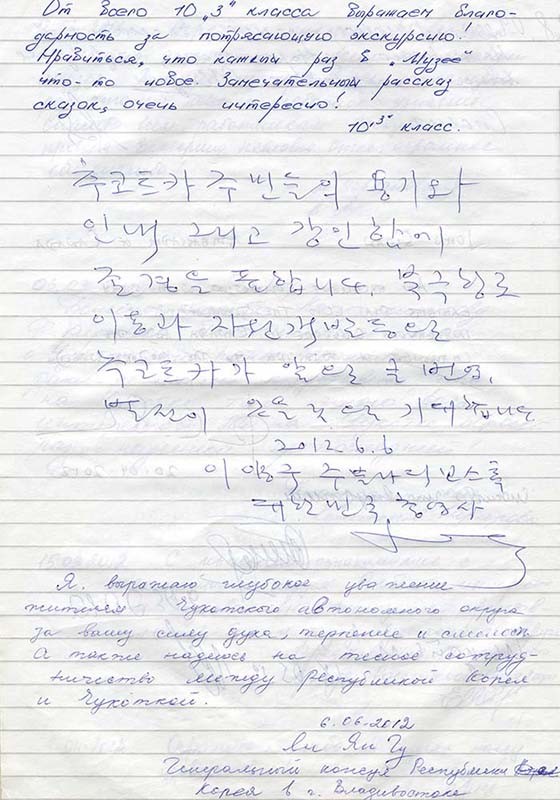 От всего 10 "З" класса выражаем благо-
дарность за потрясающую экскурсию!
Нравиться, что каждый раз в "Музее"
что-то новое. Замечательный рассказ
сказок, очень интересно!
10 "З" класс.
축코트카 주민들의 용기와
인내 그리고 강인함에
존경을 표합니다. 북극항로
이용과 자원개발 등으로
축코트카가 앞으로 큰 번영,
발전이 있을 것으로 기대합니다
2012 6.6
이양구 주블라디보스톡
대한민국 총영사
Я выражаю глубокое уважение
жителям Чукотского автономного округа
за вашу силу духа, терпение и смелость
А также надеюсь на тесное сотруд-
ничество между Республикой Корея
и Чукоткой.
6.06.2012
Ли Ян Гу
Генеральный консул Республики
Корея в г. Владивостоке